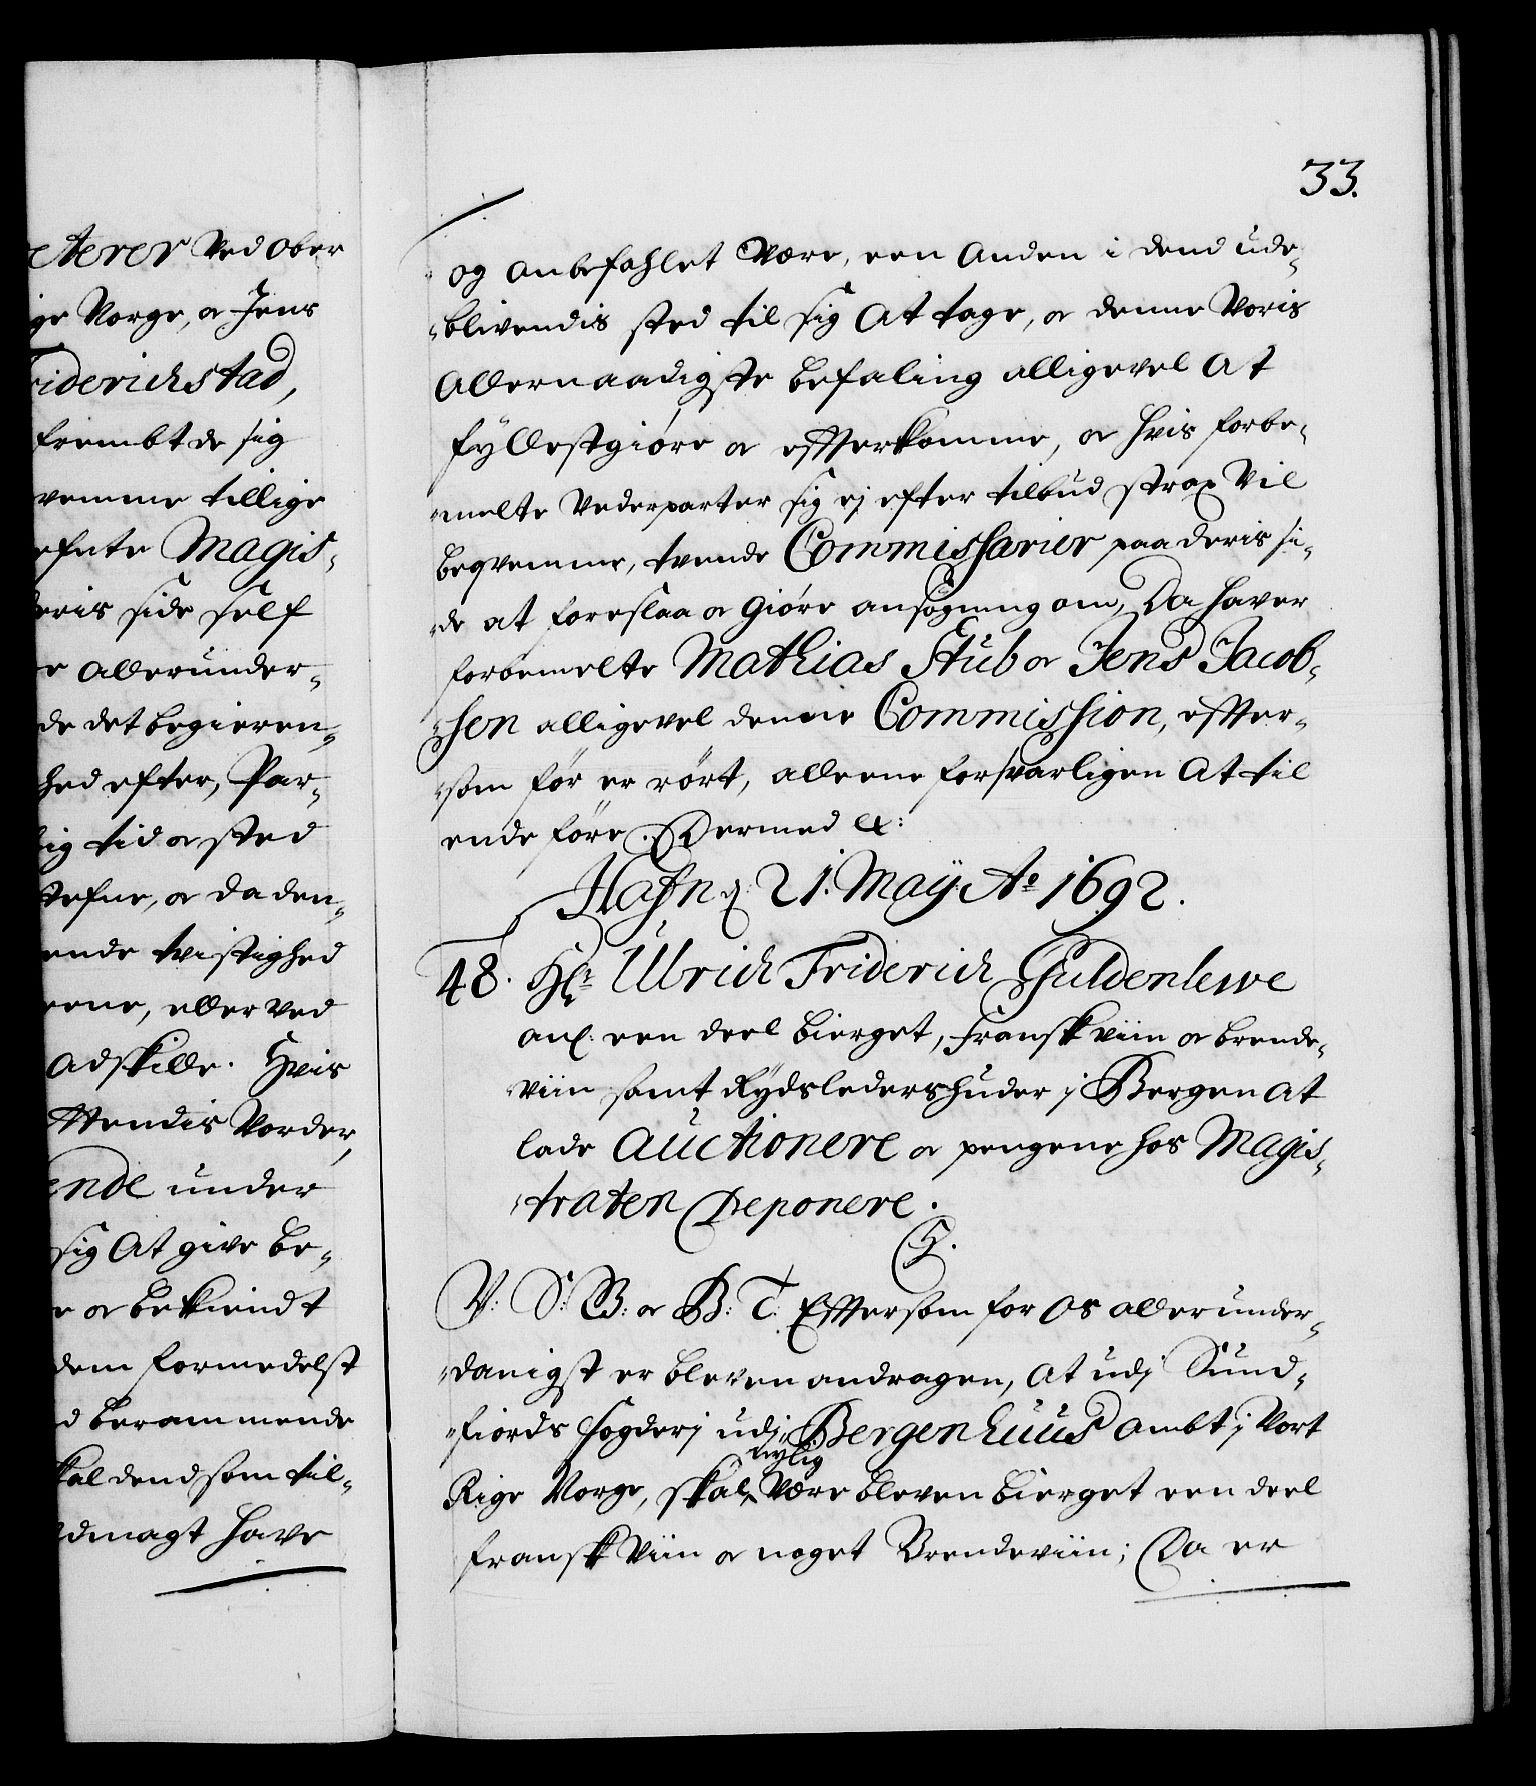 eterer Ved Ober
ige Norge, og Jens
riderichstad,
frembt de sig
qvemme tillige
efnte Magis-
deris side self
e Allerunder-
de det begieren-
hed efter, Par-
lig tid og sted
Stefne, og da den-
ende tvistighed
eene, eller ved
Adskille. Hvis
ttendis Vorder,
ende under
sig At give be-
e og bekiendt
dem formedelst
d berammende
skal dend som til-
ldmagt have
33.
og anbefahlet Være, een Anden i dend ude-
blivendis sted til sig At tage, og denne Voris
Allernaadigste befaling alligevel At
fyllestgiøre og effterkomme, og hvis forbe-
melte Vederparter sig ej efter tilbud strax Vil
beqvemme, tvende Commissarier paa deris si-
de at foreslaa og Giøre ansøgning om, Da haver
forbemelte Mathias Stub og Jens Jacob-
sen alligevel denne Commission, effter-
som før er rørt, alleene forsvarligen At til
ende føre. Dermed etc:
Hafn d: 21. Maÿ Ao 1692.
48. Hr. Ulrich Friderich Guldenlewe
anl: een deel bierget, fransk viin og brende-
viin samt Rydsledershuder j Bergen At
lade Auctionere og pengene hos Magis-
traten Deponere.
V: S: G: og B: T: Effter som for Os allerunder-
danigst er bleven andragen, At udj Sund-
fiords fogderj udj Bergenhuus Ambt j Vort
nylig
Rige Norge, skal Være bleven bierget een deel
fransk Viin og noget Brendeviin; Da er